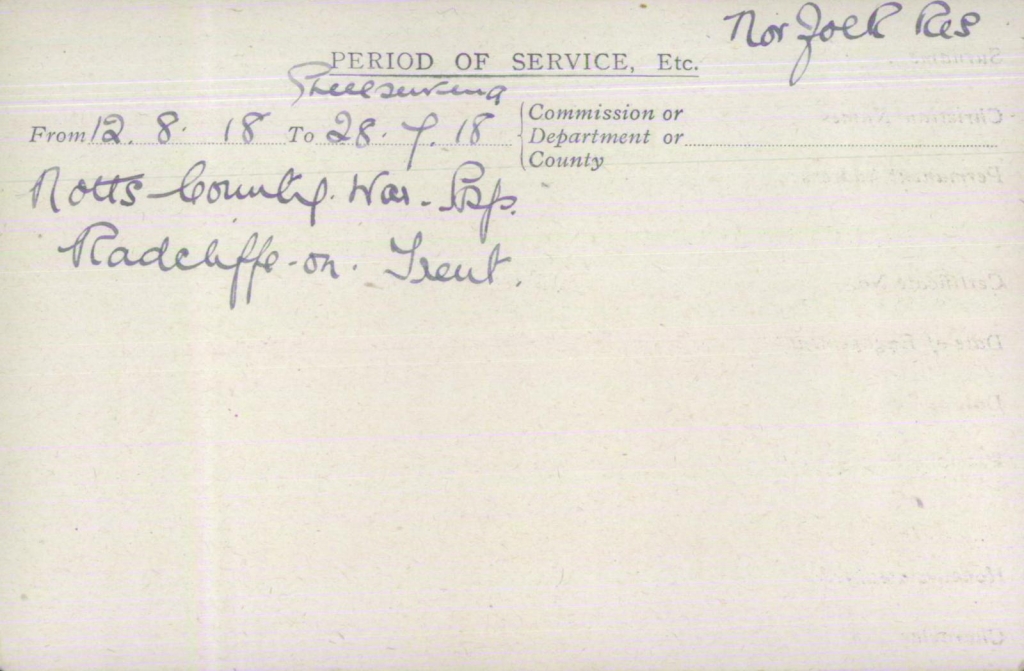 Norfolk Res
PERIOD OF SERVICE, Etc.
Still serving
From 12. 8. 18 To 28. 7. 18 Commission or
Department or
County
Notts County. War. Hosp.
Radcliffe-on. Trent.